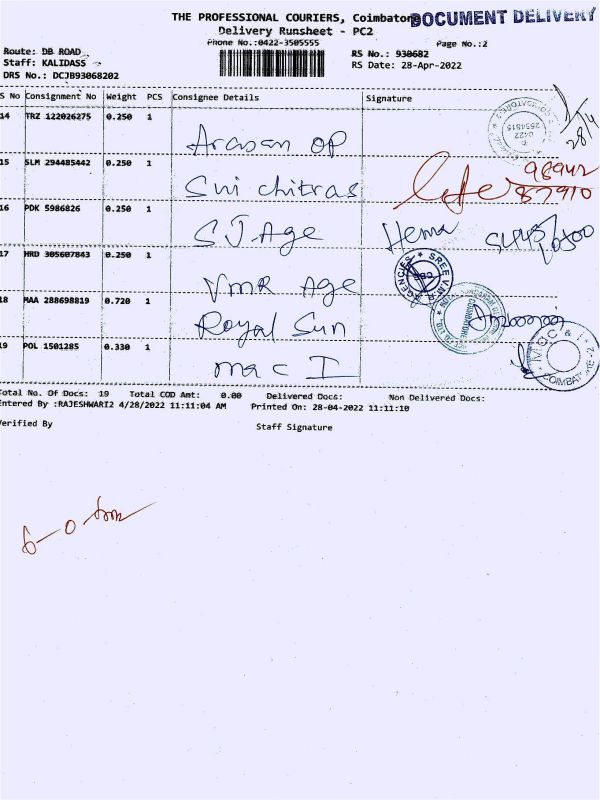 THE PROFESSIONAL COURIERS, Coimbatore
DOCUMENT DELIVERY
Delivery Runsheet - PC2
Phone No.:0422-3505555
Page No.:2
Route: DB ROAD
RS No.: 930682
Staff: KALIDASS
RS Date: 28-Apr-2022
DRS No.: DCJB93068202
S No Consignment No Weight PCS Consignee Details Signature
14 TRZ 122026275 0.250 1 Arasan OP
28/4
15 SLM 294485442 0.250 1 Sri chitras
98942
87910
16 PDK 5986826 0.250 1 S J. Age Hema
17 HRD 305607843 0.250 1 VMR Age
18 MAA 288698819 0.720 1 Royal Sun
19 POL 1501285 0.330 1 Mac I
Total No. Of Docs: 19 Total COD Amt: 0.00 Delivered Docs: Non Delivered Docs:
Entered By :RAJESHWARI2 4/28/2022 11:11:04 AM Printed On: 28-04-2022 11:11:10
Verified By Staff Signature